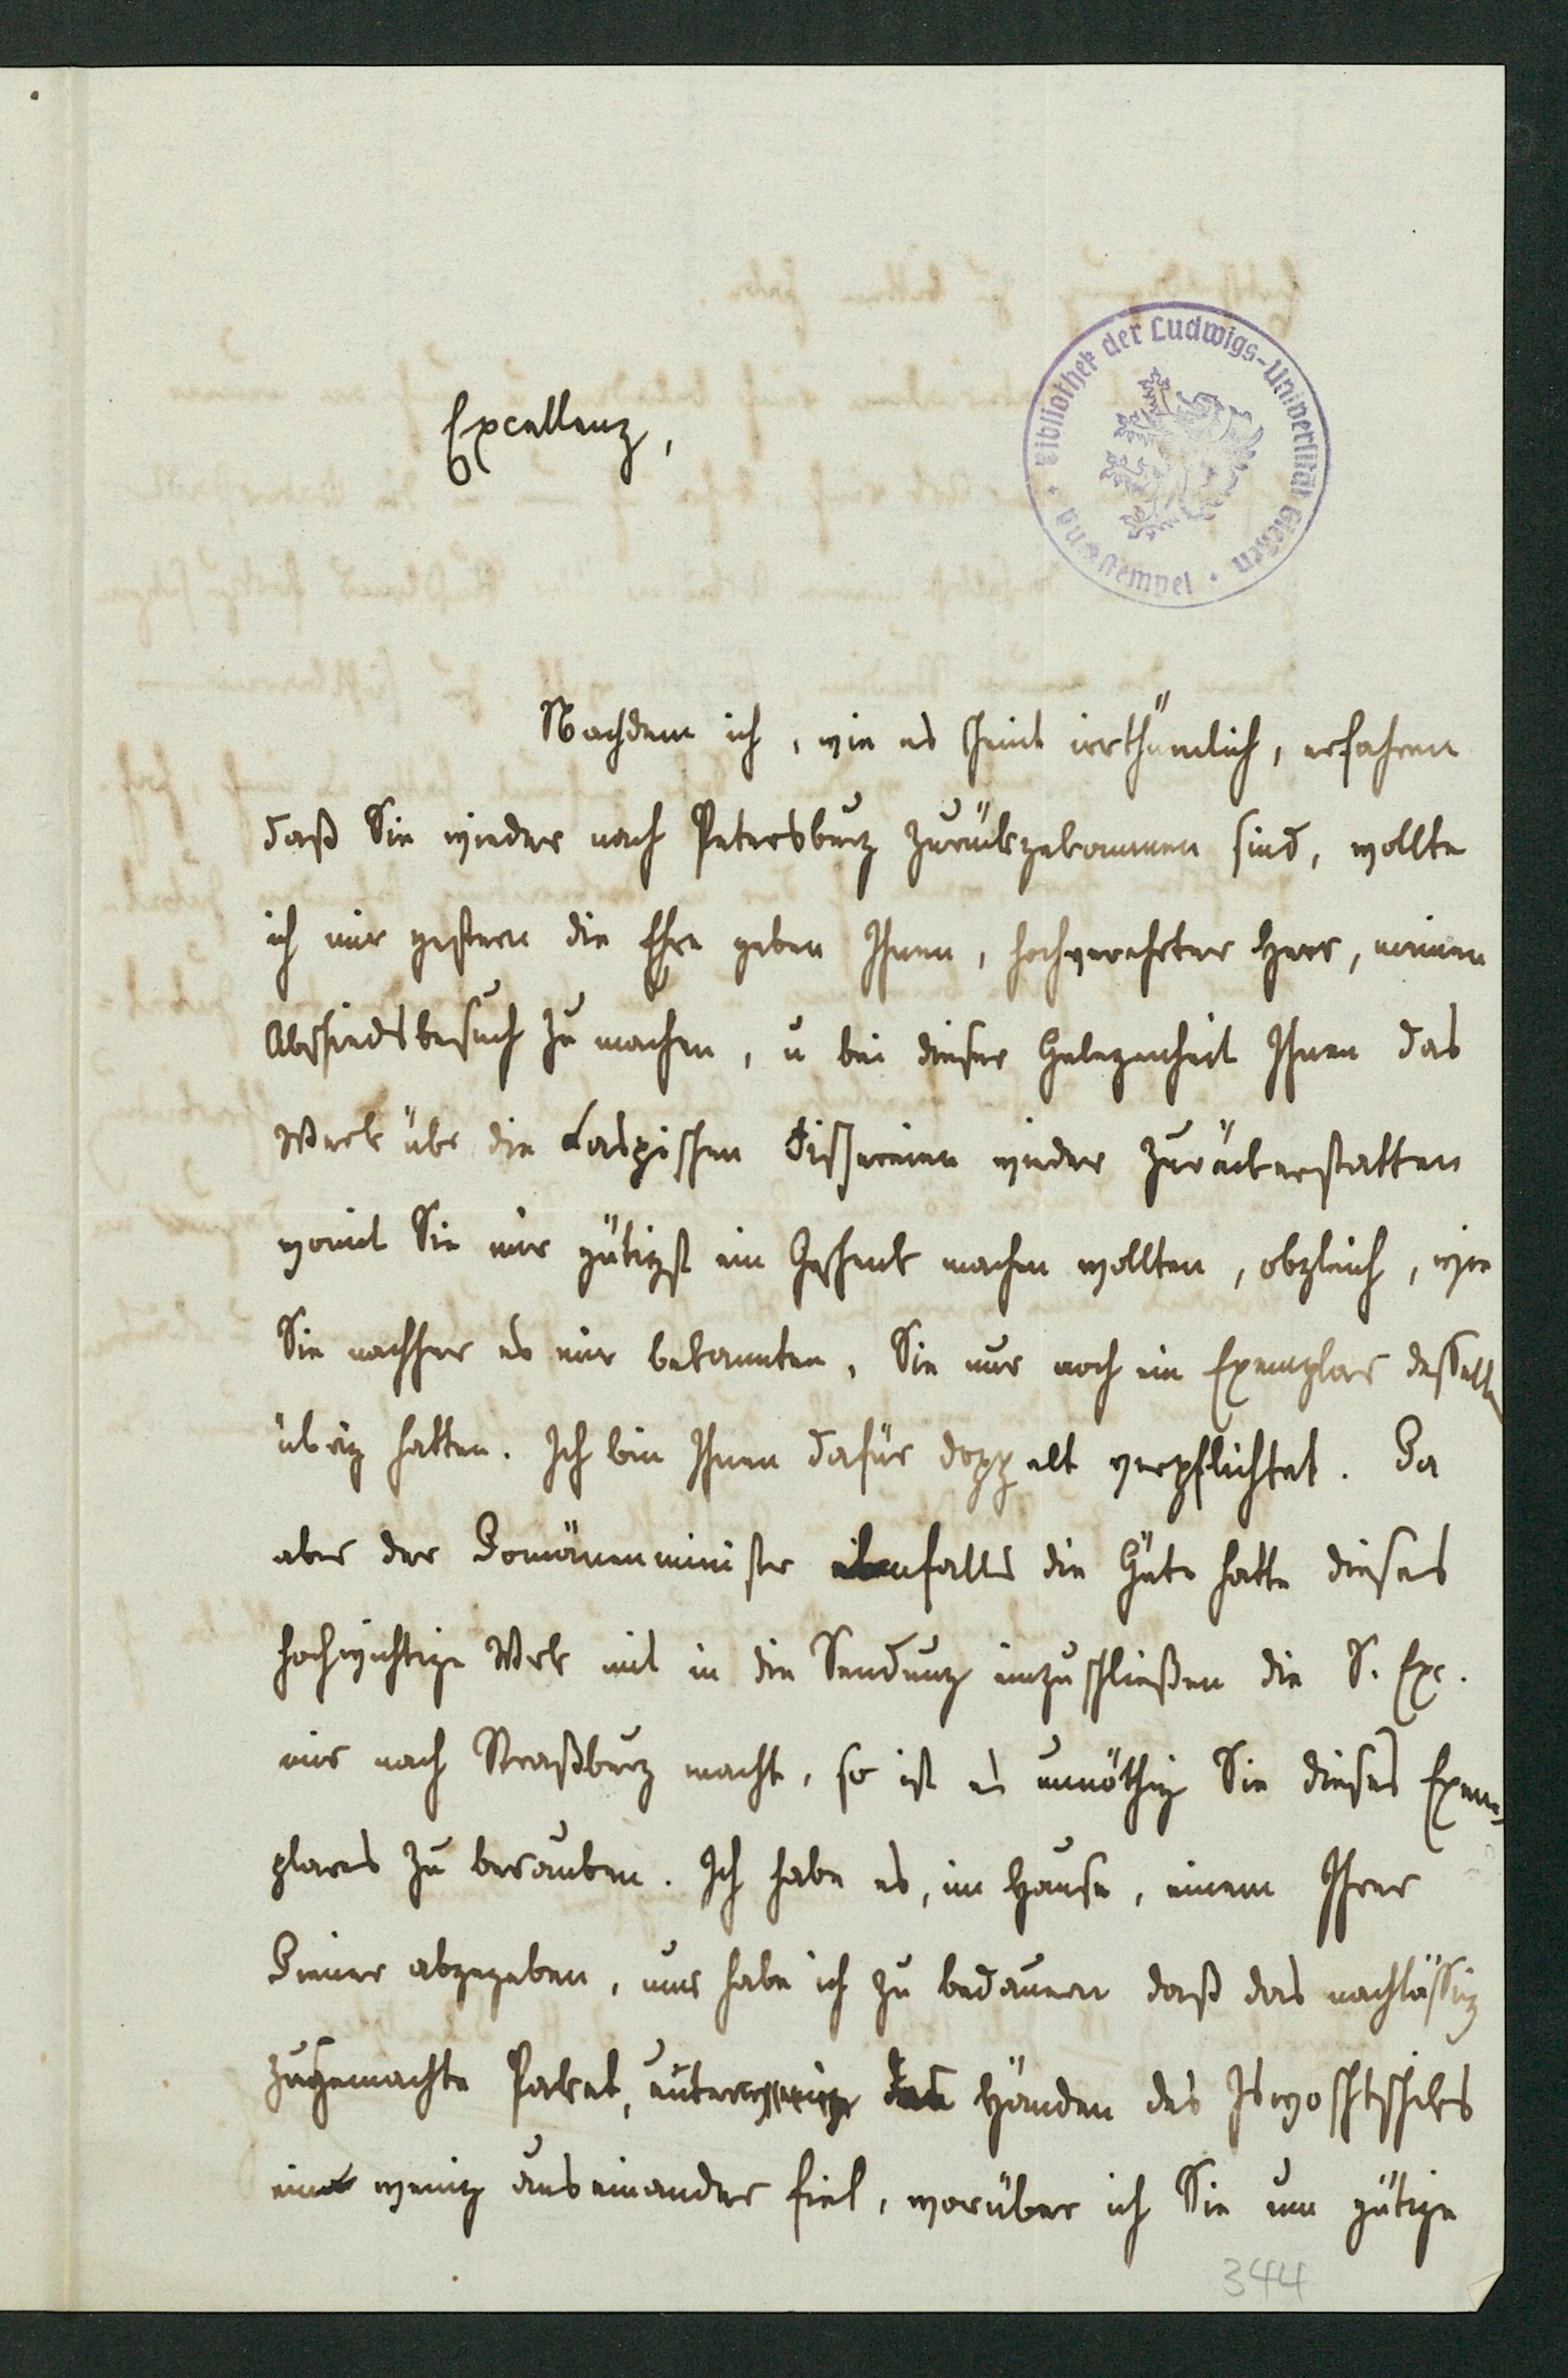 Bibliothek der Ludwigs-Universität Gießen
Excellenz,
Nachdem ich, wie es scheint irrthümlich, erfahren
daß Sie wieder nach Petersburg zurückgekommen sind, wollte
ich mir gestern die Ehre geben Ihnen, hochverehrter Herr, meinen
Abschiedsbesuch zu machen, u bei dieser Gelegenheit Ihnen das
Werk über die Caspischen Fischereien wieder zurückerstatten
womit Sie mir gütigst ein Geschenk machen wollten, obgleich, wie
Sie nachher es mir bekannten, Sie nur noch ein Exemplar desselben
übrig hatten. Ich bin Ihnen dafür doppelt verpflichtet. Da
aber der Domänenminister ebenfalls die Güte hatte dieses
hochwichtige Werk mit in die Sendung einzuschließen die S. Exc.
mir nach Straßburg macht, so ist es unnöthig Sie dieses Exem-
plares zu berauben. Ich habe es, im Hause, einem Ihrer
Diener abgegeben, nur habe ich zu bedauern daß das nachlässig
zugemachte Paket, unterwegs den Händen des Iswoschtschiks
ein wenig auseinander fiel, worüber ich Sie um gütige
344